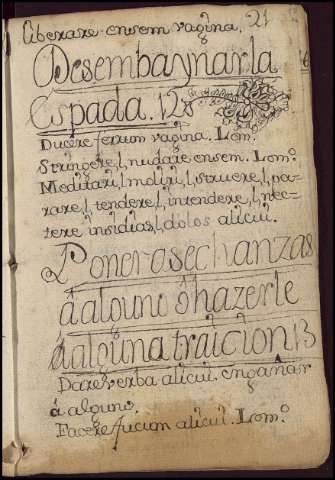 Liberare ensem vagina. 21
Desembaynar la
espada. 128
Ducere ferrum vagina. Lomº
Stringere, l, nudare ensem. Lomº
Meditari, l, moliri, l, struere, l, pa-
rare, l, tendere, l, intendere, l, nec-
tere insidias, l, dolos alicui.
Poner asechanzas
á alguno ó hazerle
á alguna traicion 13
Dare verba alicui. engañar
á alguno.
Facere fucum alicui. Lomº